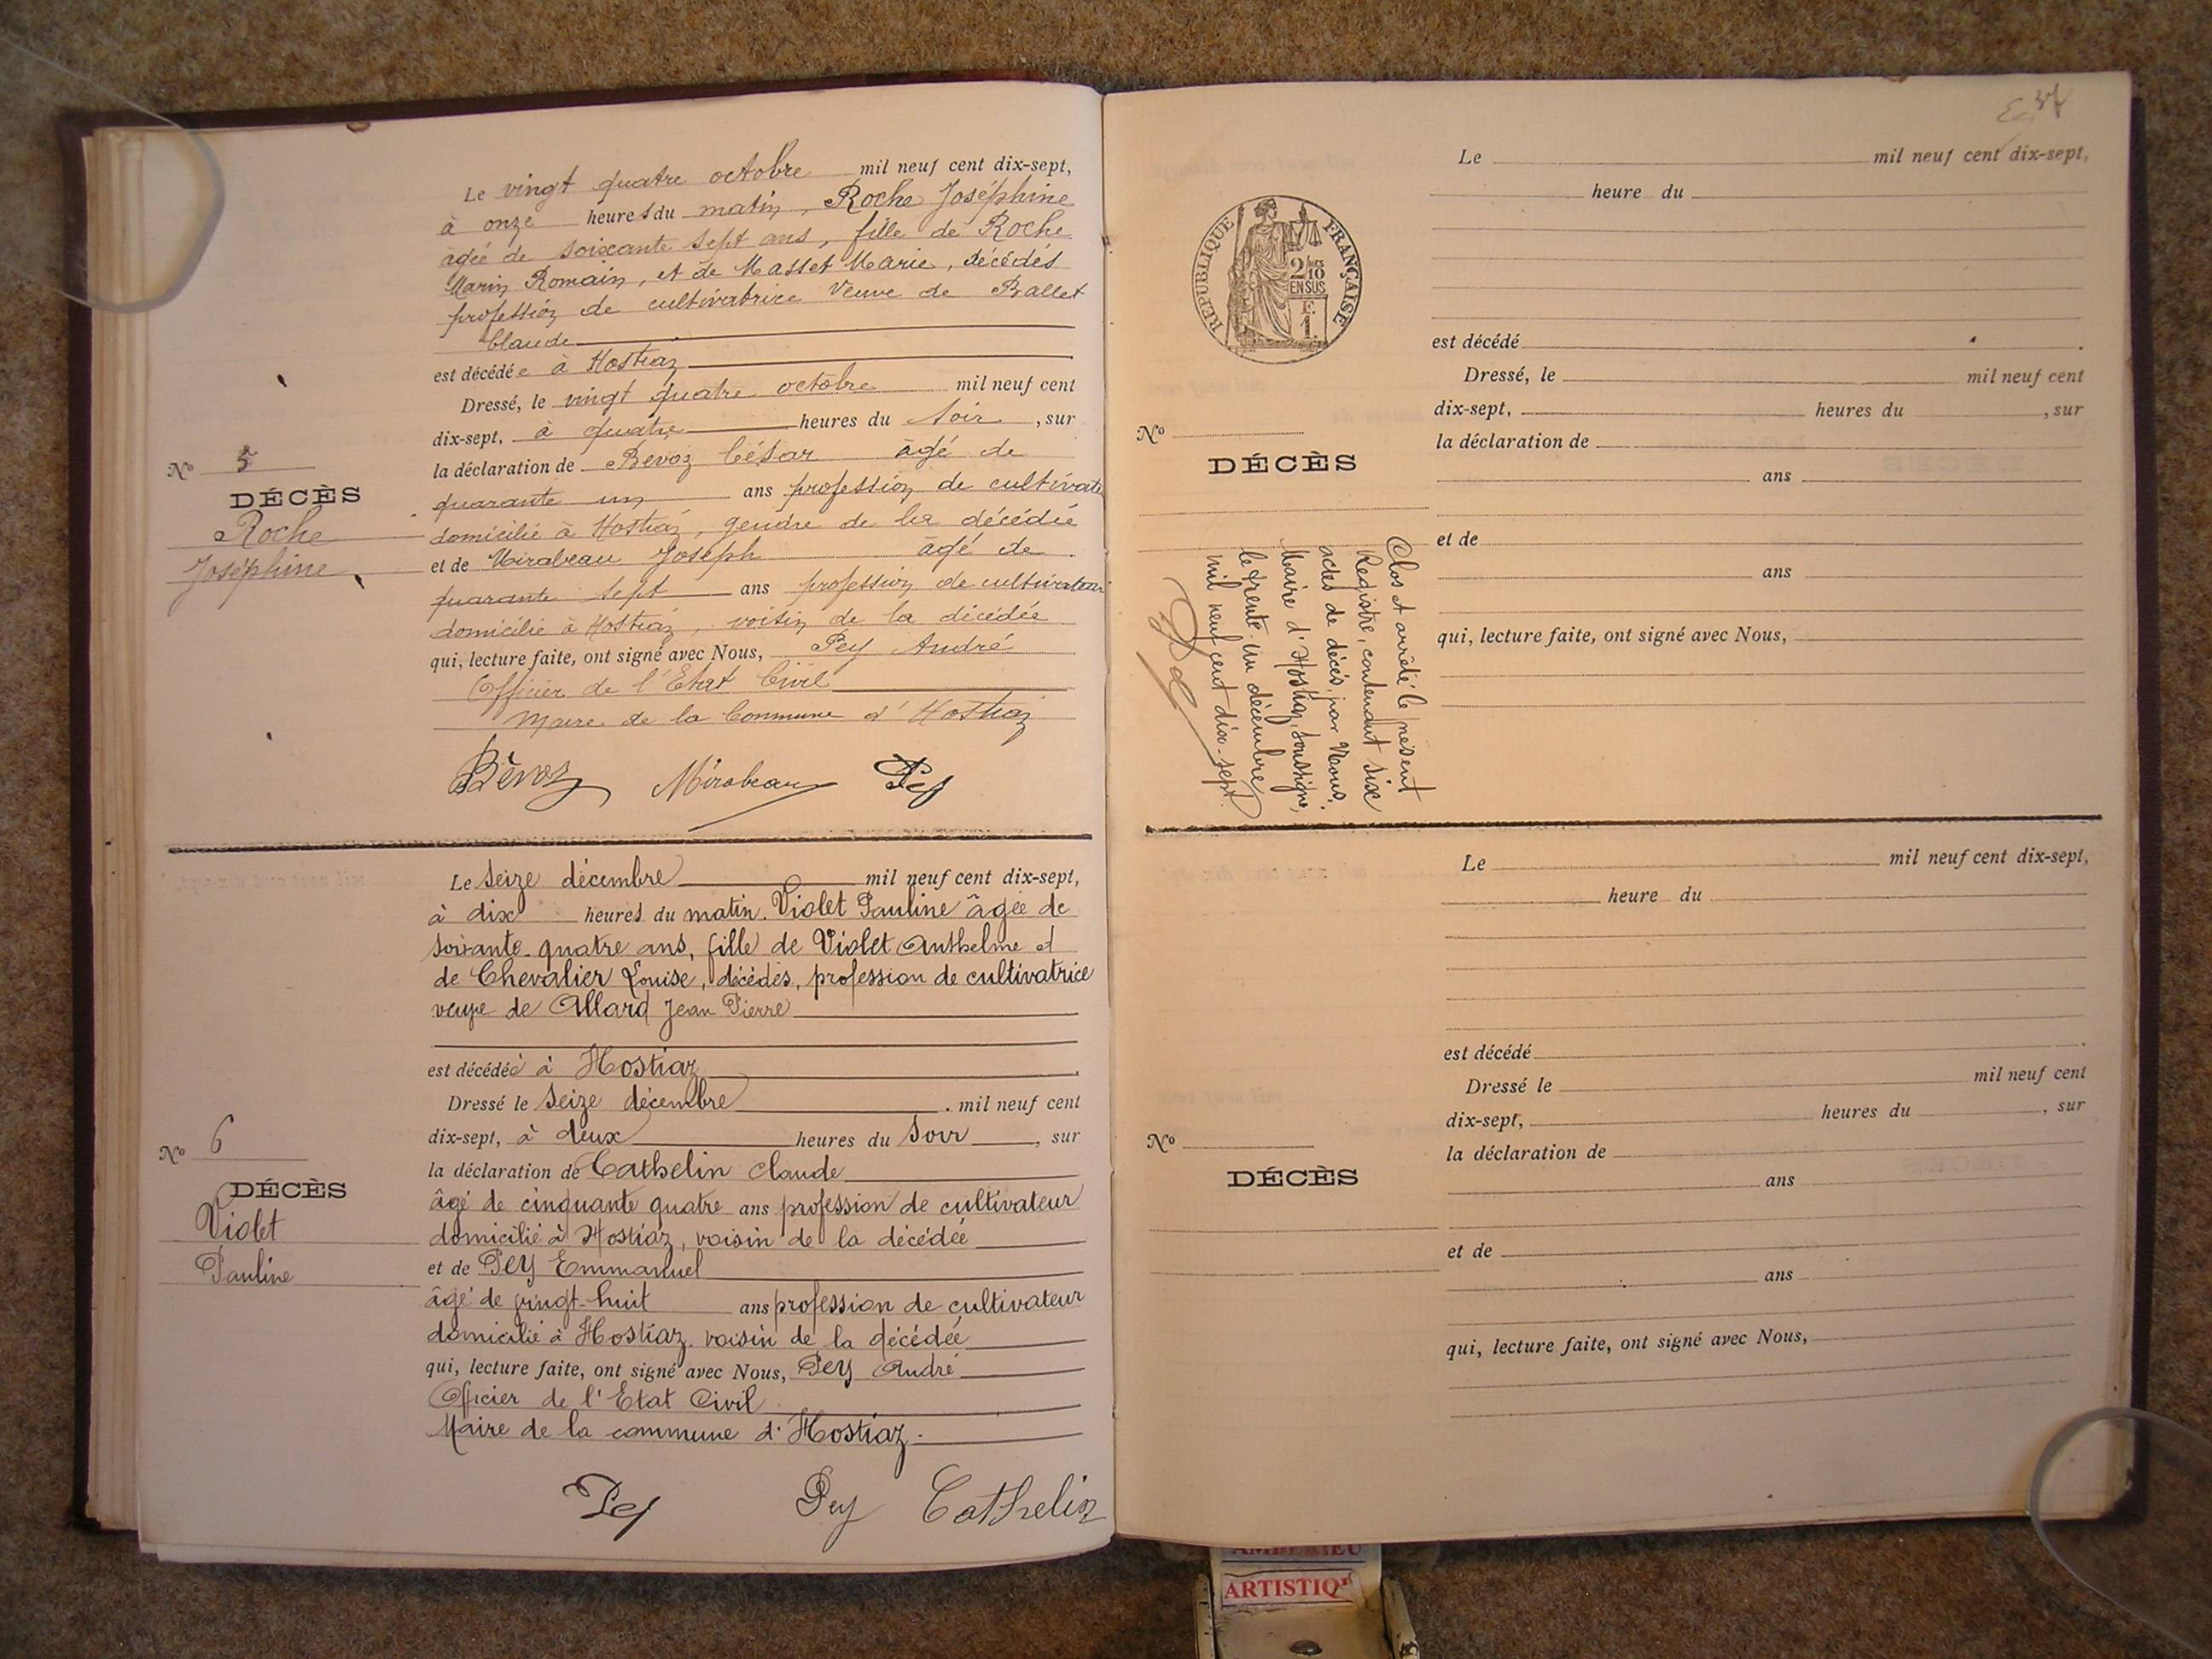 Le vingt quatre octobre mil neuf cent dix-sept,
à onze heures du matin, Roche Joséphine
agée de soixante sept ans, fille de Roche
Marin Romain, et de Masset Marie, décédés
profession de cultivatrice Veuve de Ballet
Claude
est décédée à Hostiaz
Dressé, le vingt quatre octobre mil neuf cent
dix-sept, à quatre heures du soir, sur
la déclaration de Bevoz César âgé de
quarante un ans profession de cultivate
domicilié à Hostiaz, gendre de la décédée
et de Mirabeau Joseph âgé de
quarante sept ans profession de cultivateur
domicilié à Hostiaz, voisin de la décédée
qui, lecture faite, ont signé avec Nous, Pey André
Officier de l'Etat Civil
Maire de la Commune d'Hostiaz
Bévoz Mirabeau Pey
No 5
DÉCÈS
Roche
Joséphine
Le seize décembre mil neuf cent dix-sept,
à dix heures du matin. Violet Pauline âgée de
soixante-quatre ans, fille de Violet Anthelme et
de Chevalier Louise, décédés, profession de cultivatrice
veuve de Allard Jean Pierre
est décédée à Hostiaz
Dressé le seize décembre mil neuf cent
dix-sept, à deux heures du soir, sur
la déclaration de Cathelin Claude
âgé de cinquante quatre ans profession de cultivateur
domicilié à Hostiaz, voisin de la décédée
et de Pey Emmanuel
âgé de vingt-huit ans profession de cultivateur
domicilié à Hostiaz. voisin de la décédée
qui, lecture faite, ont signé avec Nous, Pey André
Officier de l'Etat Civil
Maire de la commune d'Hostiaz.
Pey Pey Cathelin
No 6
DÉCÈS
Violet
Pauline
RÉPUBLIQUE FRANÇAISE
2/10
EN SUS
F.
1.
Le mil neuf cent dix-sept,
heure du
est décédé
Dressé, le mil neuf cent
dix-sept, heures du , sur
la déclaration de
ans
et de
ans
qui, lecture faite, ont signé avec Nous,
No
DÉCÈS
Clos et arrêté le présent
Registre, contenant six
actes de décès, par Nous,
Maire d'Hostiaz, soussigné,
le trente-un décembre
mil neuf cent dix-sept.
Le mil neuf cent dix-sept,
heure du
est décédé
Dressé le mil neuf cent
dix-sept, heures du , sur
la déclaration de
ans
et de
ans
qui, lecture faite, ont signé avec Nous,
No
DÉCÈS
AMBERIEU
ARTISTIQ